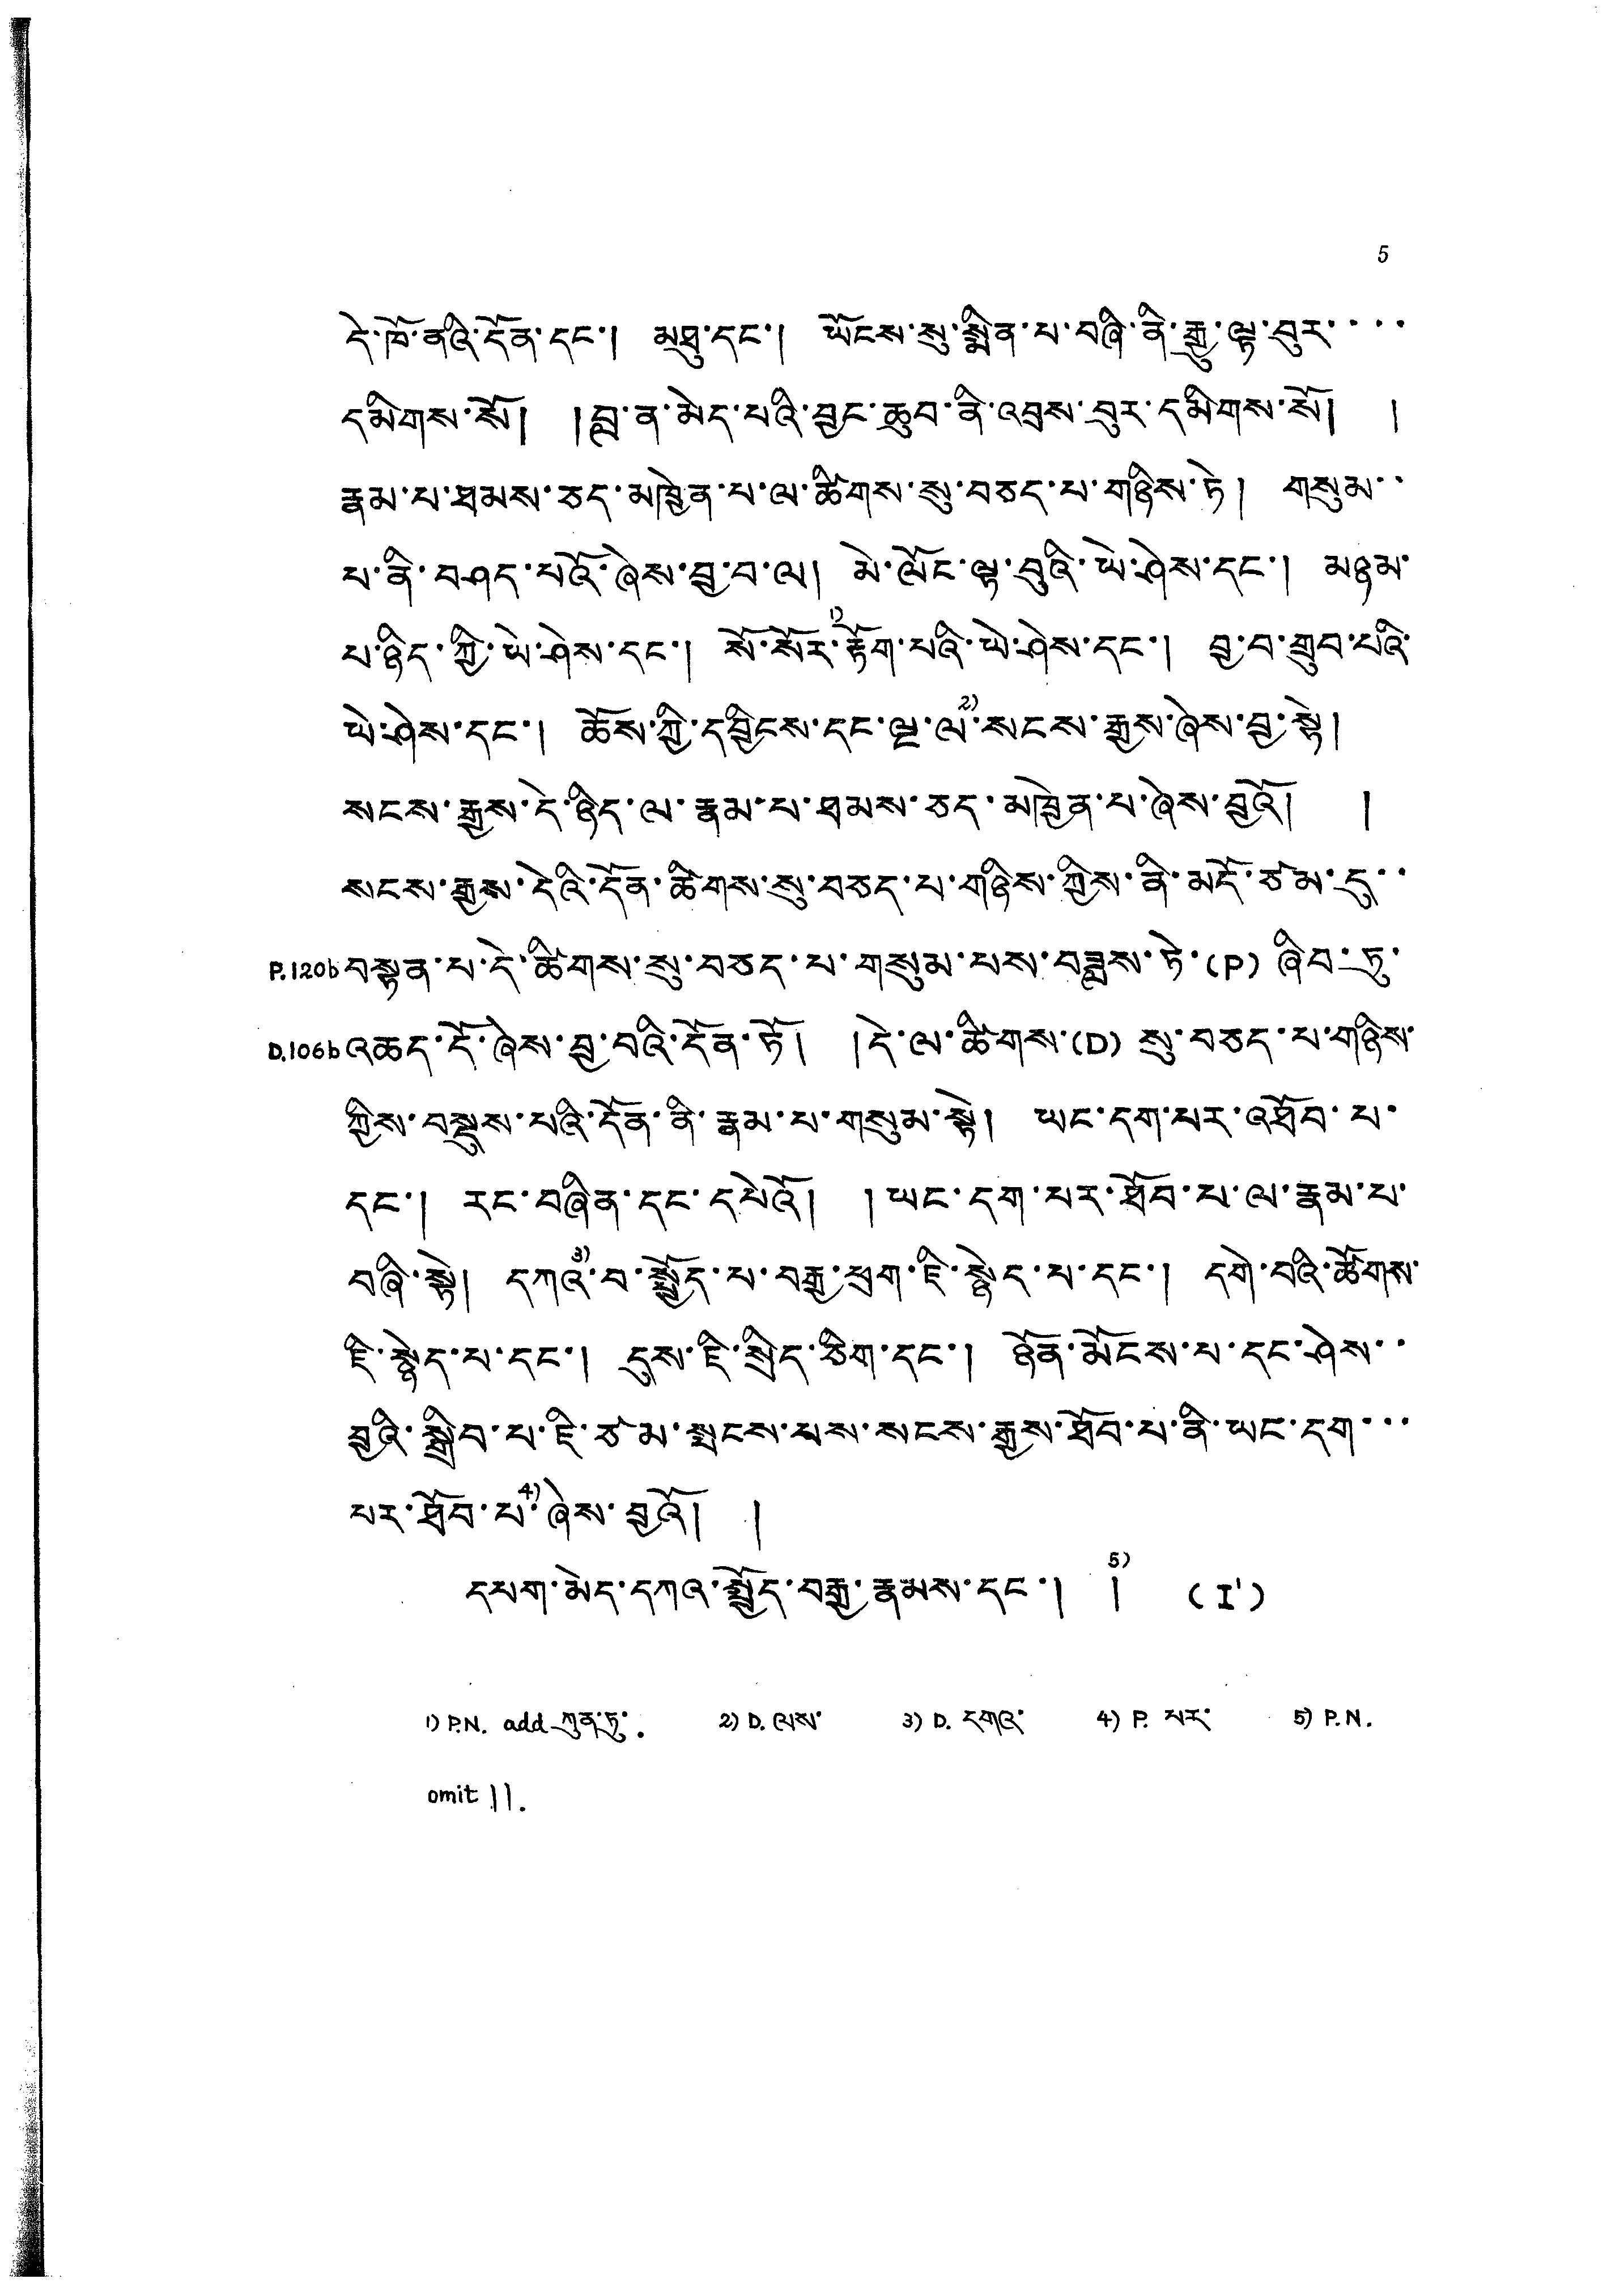 5
དེ་ཁོ་ནའི་དོན་དང་། མཐུ་དང་། ཡོངས་སུ་སྨིན་པ་བཞི་ནི་རྒྱུ་ལྟ་བུར་ ་ ་ ་
དམིགས་སོ། །བླ་ན་མེད་པའི་བྱང་ཆུབ་ནི་འབྲས་བུར་དམིགས་སོ། །
རྣམ་པ་ཐམས་ཅད་མཁྱེན་པ་ལ་ཚིགས་སུ་བཅད་པ་གཉིས་ཏེ། གསུམ་ ་
པ་ནི་བཤད་པའོ་ཞེས་བྱ་བ་ལ། མེ་ལོང་ལྟ་བུའི་ཡེ་ཤེས་དང་། མཉམ་
པ་ཉིད་ཀྱི་ཡེ་ཤེས་དང་། སོ་སོར་1)རྟོག་པའི་ཡེ་ཤེས་དང་། བྱ་བ་གྲུབ་པའི་
ཡེ་ཤེས་དང་། ཆོས་ཀྱི་དབྱིངས་དང་ལྔ་ལ2)་སངས་རྒྱས་ཞེས་བྱ་སྟེ།
སངས་རྒྱས་དེ་ཉིད་ལ་རྣམ་པ་ཐམས་ཅད་མཁྱེན་པ་ཞེས་བྱའོ། །
སངས་རྒྱས་དེའི་དོན་ཚིགས་སུ་བཅད་པ་གཉིས་ཀྱིས་ནི་མདོ་ཙམ་དུ་ ་
P.120b བསྟན་པ་དེ་ཚིགས་སུ་བཅད་པ་གསུམ་པས་བཟླས་ཏེ་(P) ཞིབ་ཏུ་
D.106b འཆད་དོ་ཞེས་བྱ་བའི་དོན་ཏོ། །དེ་ལ་ཚིགས་(D) སུ་བཅད་པ་གཉིས་
ཀྱིས་བསྡུས་པའི་དོན་ནི་རྣམ་པ་གསུམ་སྟེ། ཡང་དག་པར་འཐོབ་པ་
དང་། རང་བཞིན་དང་དཔེའོ། །ཡང་དག་པར་ཐོབ་པ་ལ་རྣམ་པ་
བཞི་སྟེ། དཀའ3)་བ་སྤྱོད་པ་བརྒྱ་ཕྲག་ཇི་སྙེད་པ་དང་། དགེ་བའི་ཚོགས་
ཇི་སྙེད་པ་དང་། དུས་ཇི་སྲིད་ཅིག་དང་། ཉོན་མོངས་པ་དང་ཤེས་ ་
བྱའི་སྒྲིབ་པ་ཇི་ཙམ་སྤངས་པས་སངས་རྒྱས་ཐོབ་པ་ནི་ཡང་དག་ ་ ་
པར་ཐོབ་པ4)་ཞེས་བྱའོ། །
དཔག་མེད་དཀའ་སྤྱོད་བརྒྱ་རྣམས་དང་། །5) (I')
1) P.N. add ཀུན་ཏུ་. 2) D. ལས་ 3) D. དགའ་ 4) P. པར་ 5) P.N.
omit །།.